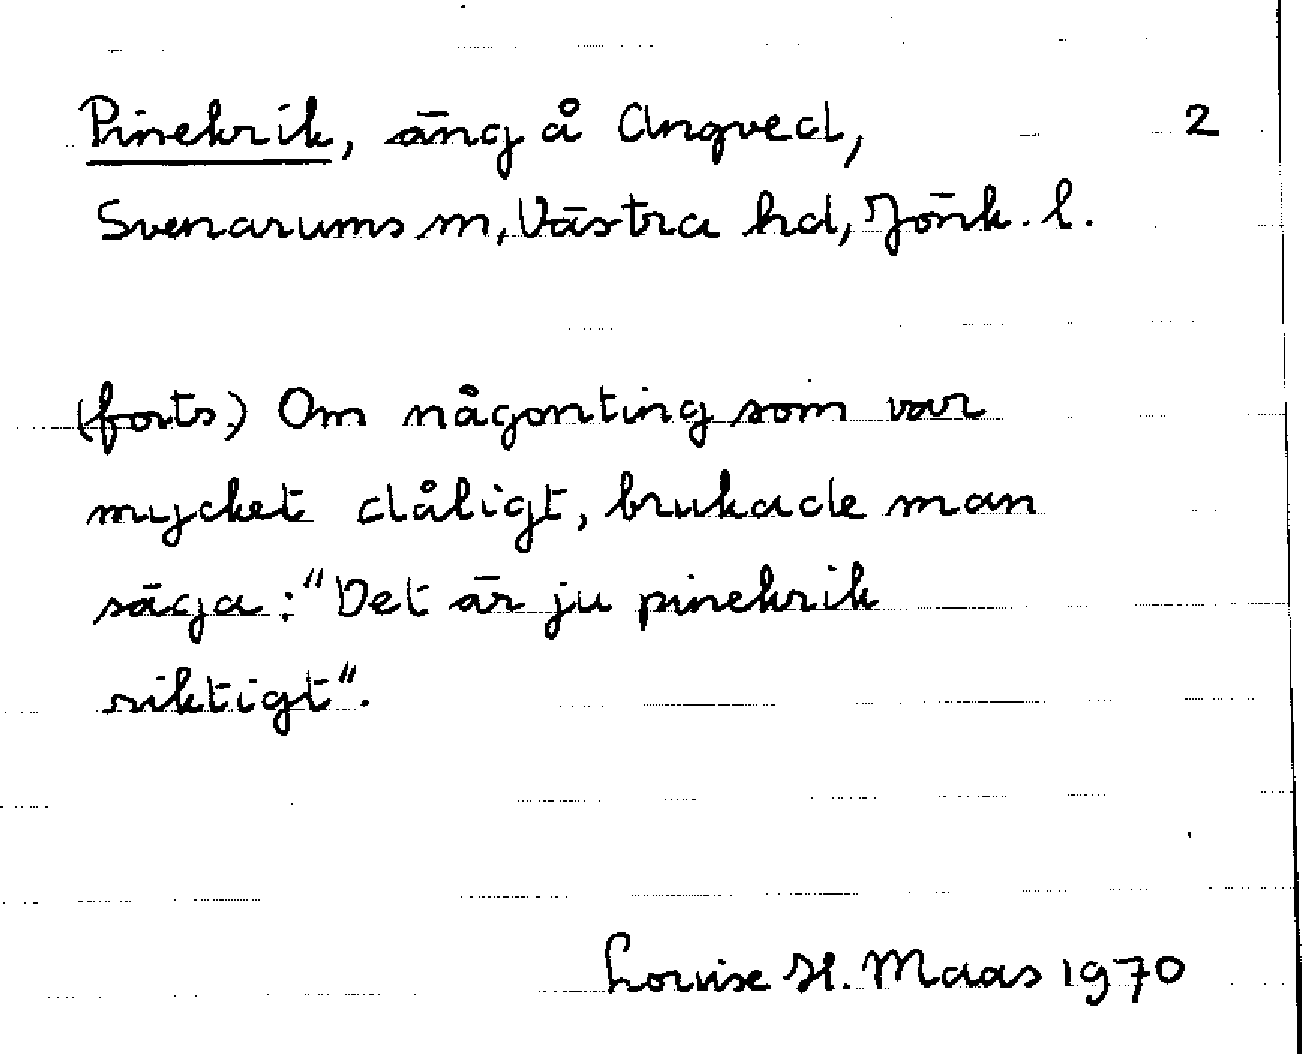 Pinekrik, äng å Angved, 2
Svenarums sn, Västra hd, Jönk. l.
(forts.) Om någonting som var
mycket dåligt, brukade man
säga: "Det är ju pinekrik
riktigt".
Louise H. Maas 1970